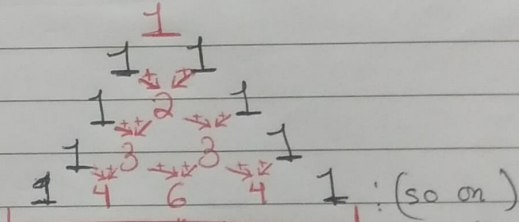 1
1 1
1 2 1
1 3 3 1
1 4 6 4 1 : (so on)